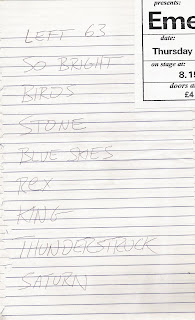 LEFT 63
SO BRIGHT
BIRDS
STONE
BLUE SKIES
REX
KING
THUNDERSTRUCK
SATURN
presents:
Eme
date:
Thursday
on stage at:
8.15
doors a
£4